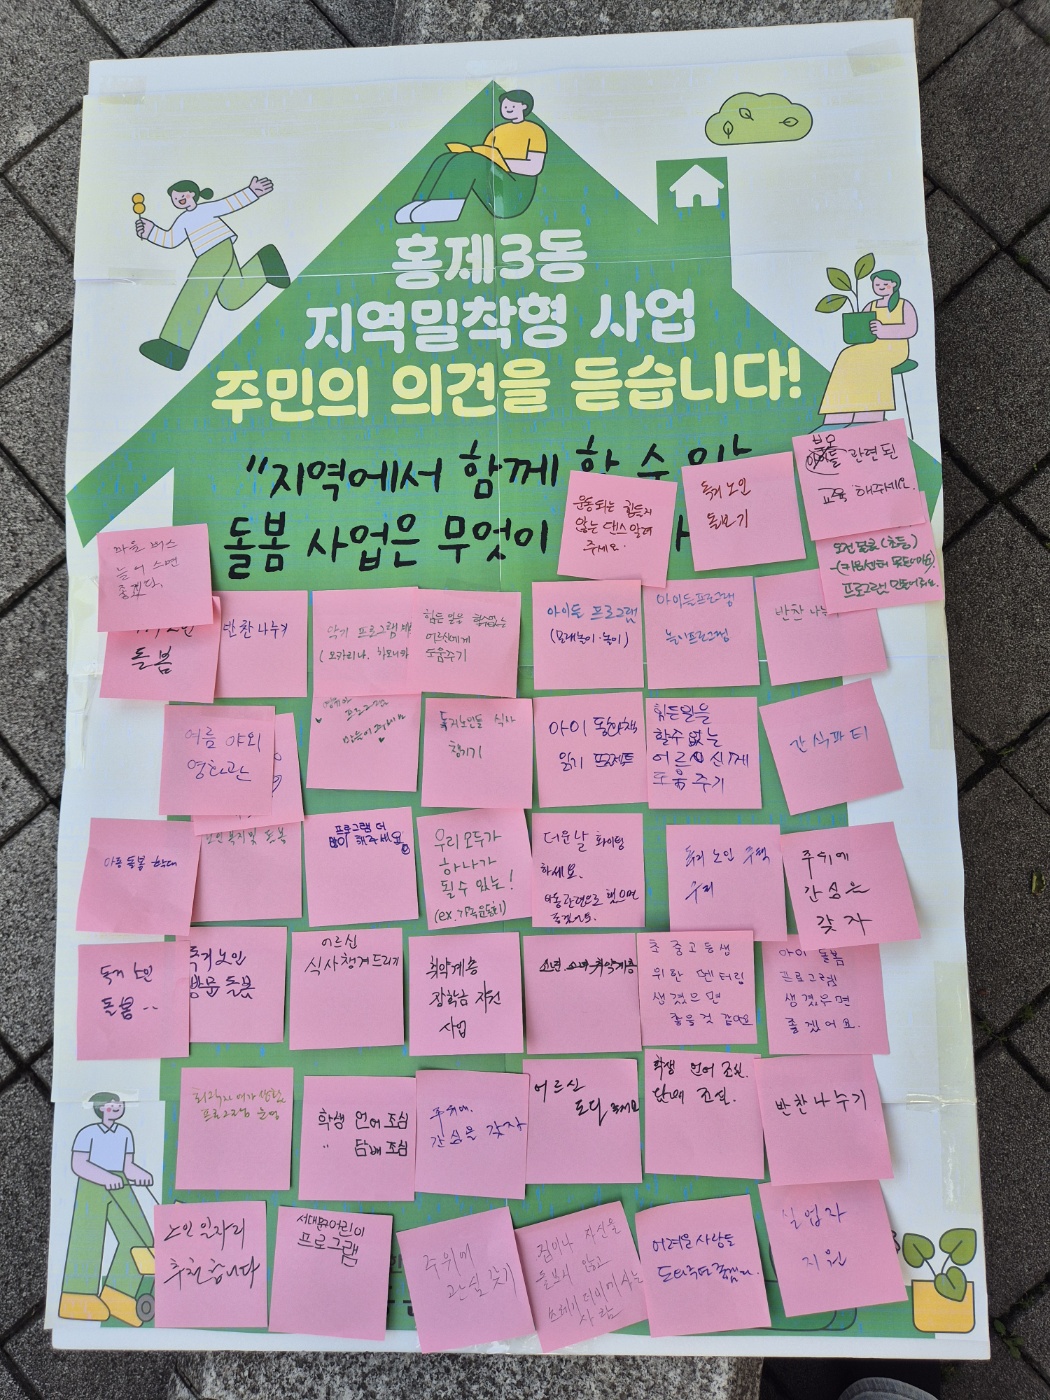 홍제3동
지역밀착형 사업
주민의 의견을 듣습니다!
"지역에서 함께 할 수 있
돌봄 사업은 무엇이
운동되는 힘들지
않는 댄스 알려
주세요.
독거 노인
돌보기
부모
관련된
교육 해주세요.
프로그램 만들어주세요.
마을 버스
늘어 스면
좋겠다.
돌봄
반찬 나누기
악기 프로그램
(오카리나, 하모니카
힘든 일을 할수없는
어르신에게
도움주기
아이들 프로그램
(모래놀이·놀이)
아이들프로그램
놀이프로그램
반찬 나누
여름 야외
영화관
프로그램
독거노인들 식사
챙기기
아이 동화책
읽기 프로젝트
힘든일을
할수 없는
어르신에게
도움 주기
간식파티
아동 돌봄 확대
노인 복지 및 돌봄
프로그램 더
많이 해주세요
우리 모두가
하나가
될수 있는!
더운날 화이팅
하세요.
독거 노인
주위에
관심을
갖자
독거 노인
돌봄..
독거노인
방문 돌봄
어르신
식사챙겨드리기
취약계층
장학금 지원
사업
초 중 고 등생
위한 멘터링
생겼으면
좋을것 같아요
아이 돌봄
프로그램
생겼우면
좋겠어요.
프로그램 운영
학생 언어 조심
〃 담배 조심
주위에
관심을 갖자
어르신
학생 언어 조심.
담배 조심.
반찬나누기
노인 일자리
추천합니다
서대문어린이
프로그램
주위에
관심 갖기
어려운 사람들
실업자
지원